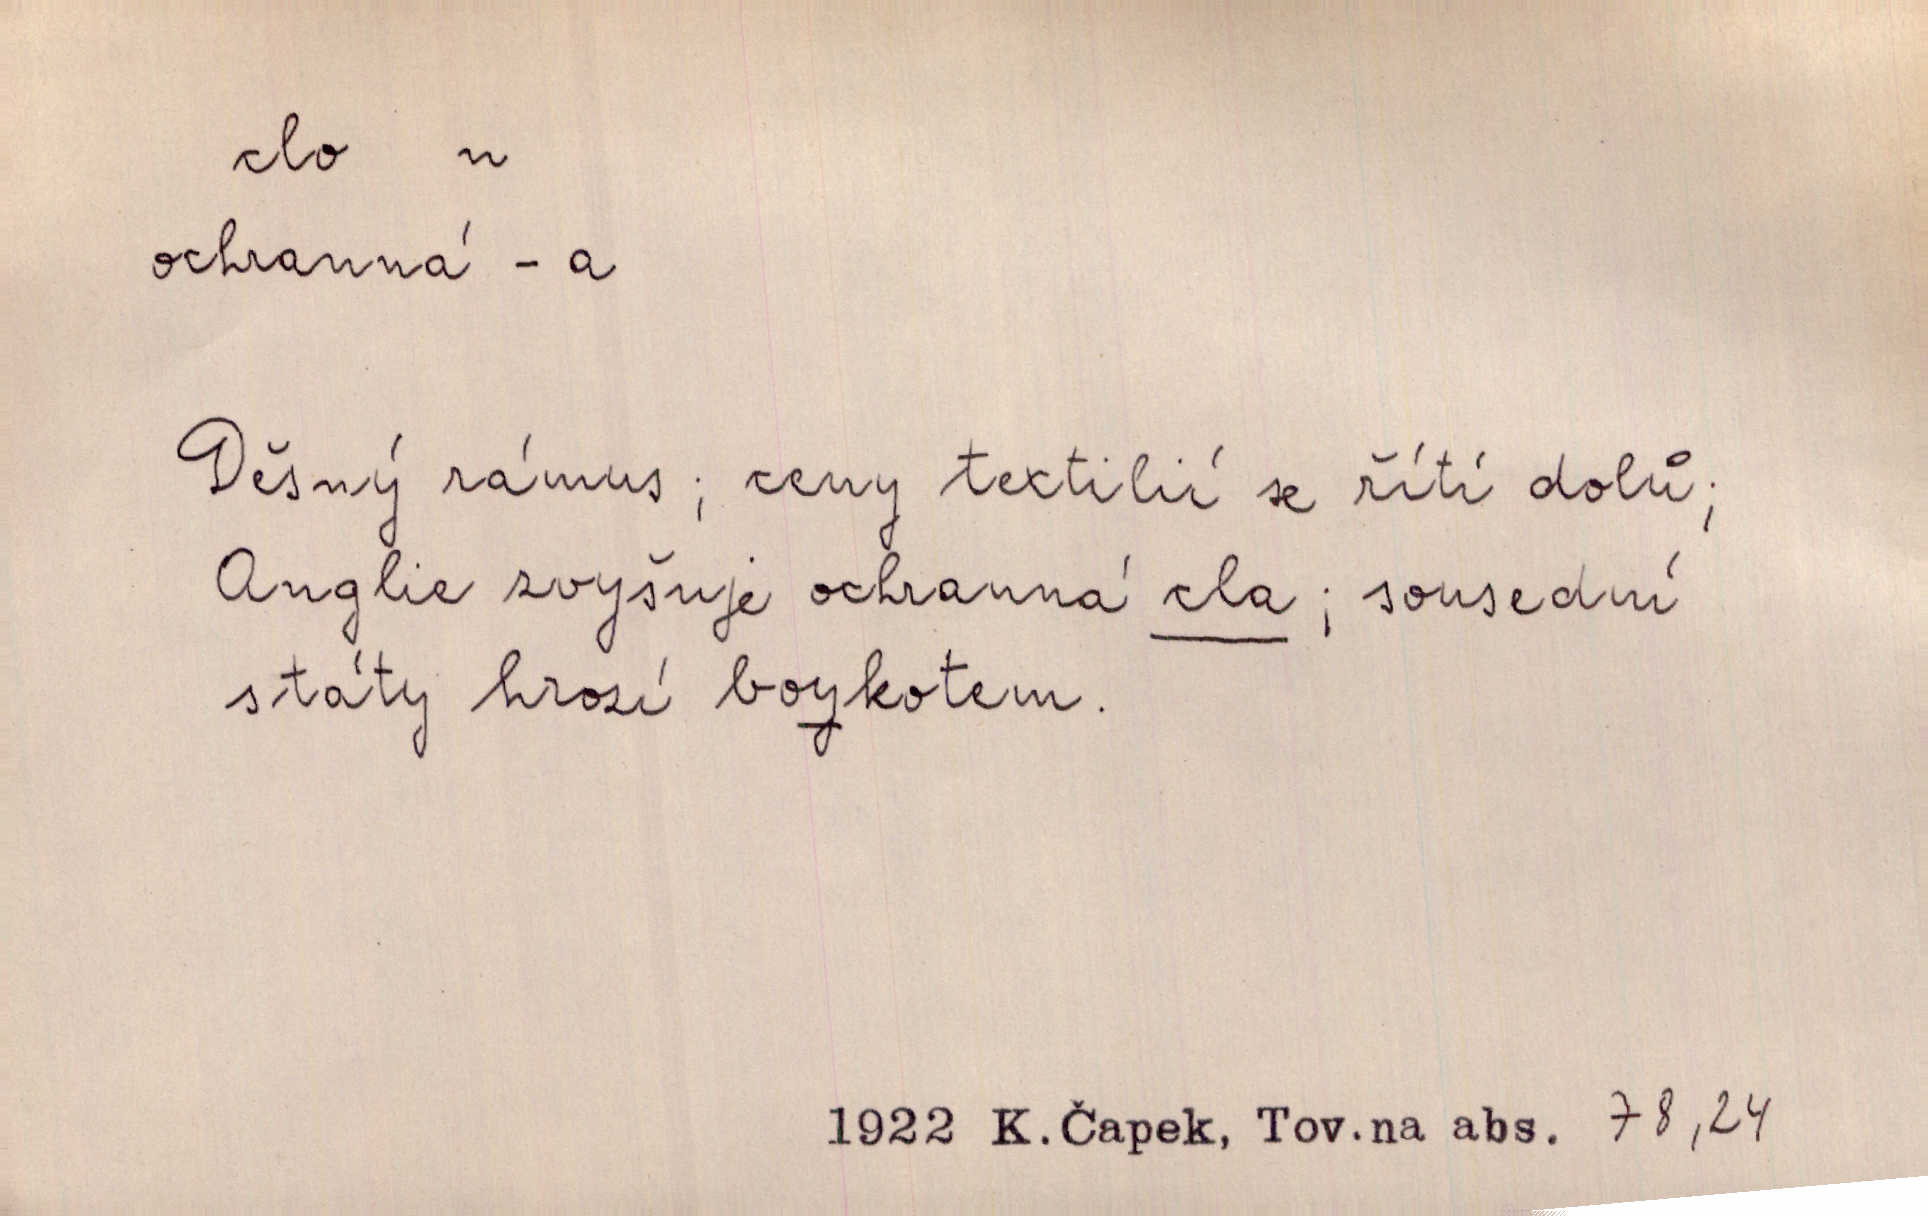 clo n
ochranná - a
Děsný rámus; ceny textilií se řítí dolů;
Anglie zvyšuje ochranná cla; sousední
státy hrozí boykotem.
1922 K.Čapek, Tov.na abs. 78,24